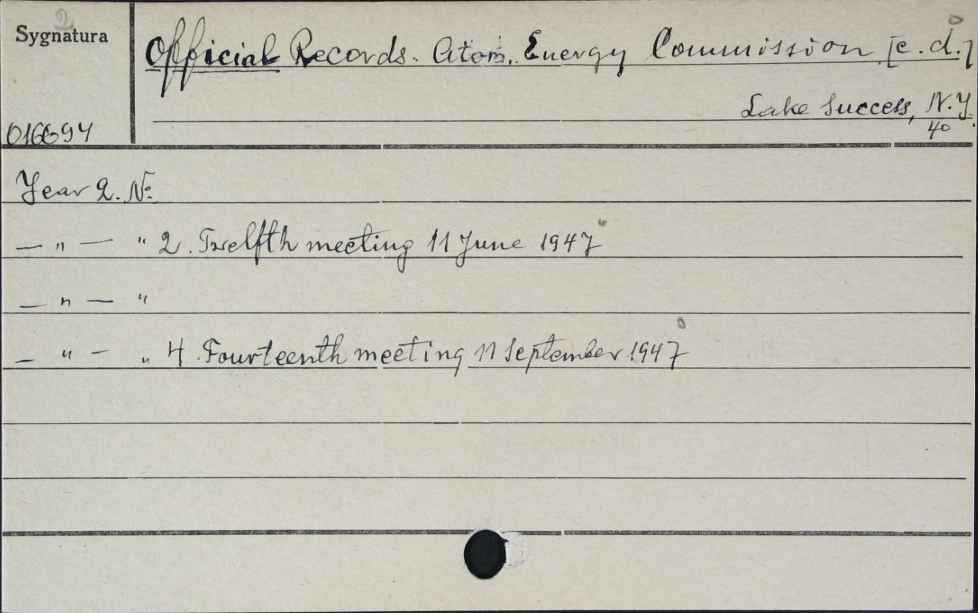 2
Sygnatura
016694
Official Records. Atom. Energy Commission [c.d.]
Lake Success, N.Y.
4o
Year 2. No
— " — " 2. Twelfth meeting 11 June 1947
— " — "
— " — " 4. Fourteenth meeting 11 September 1947